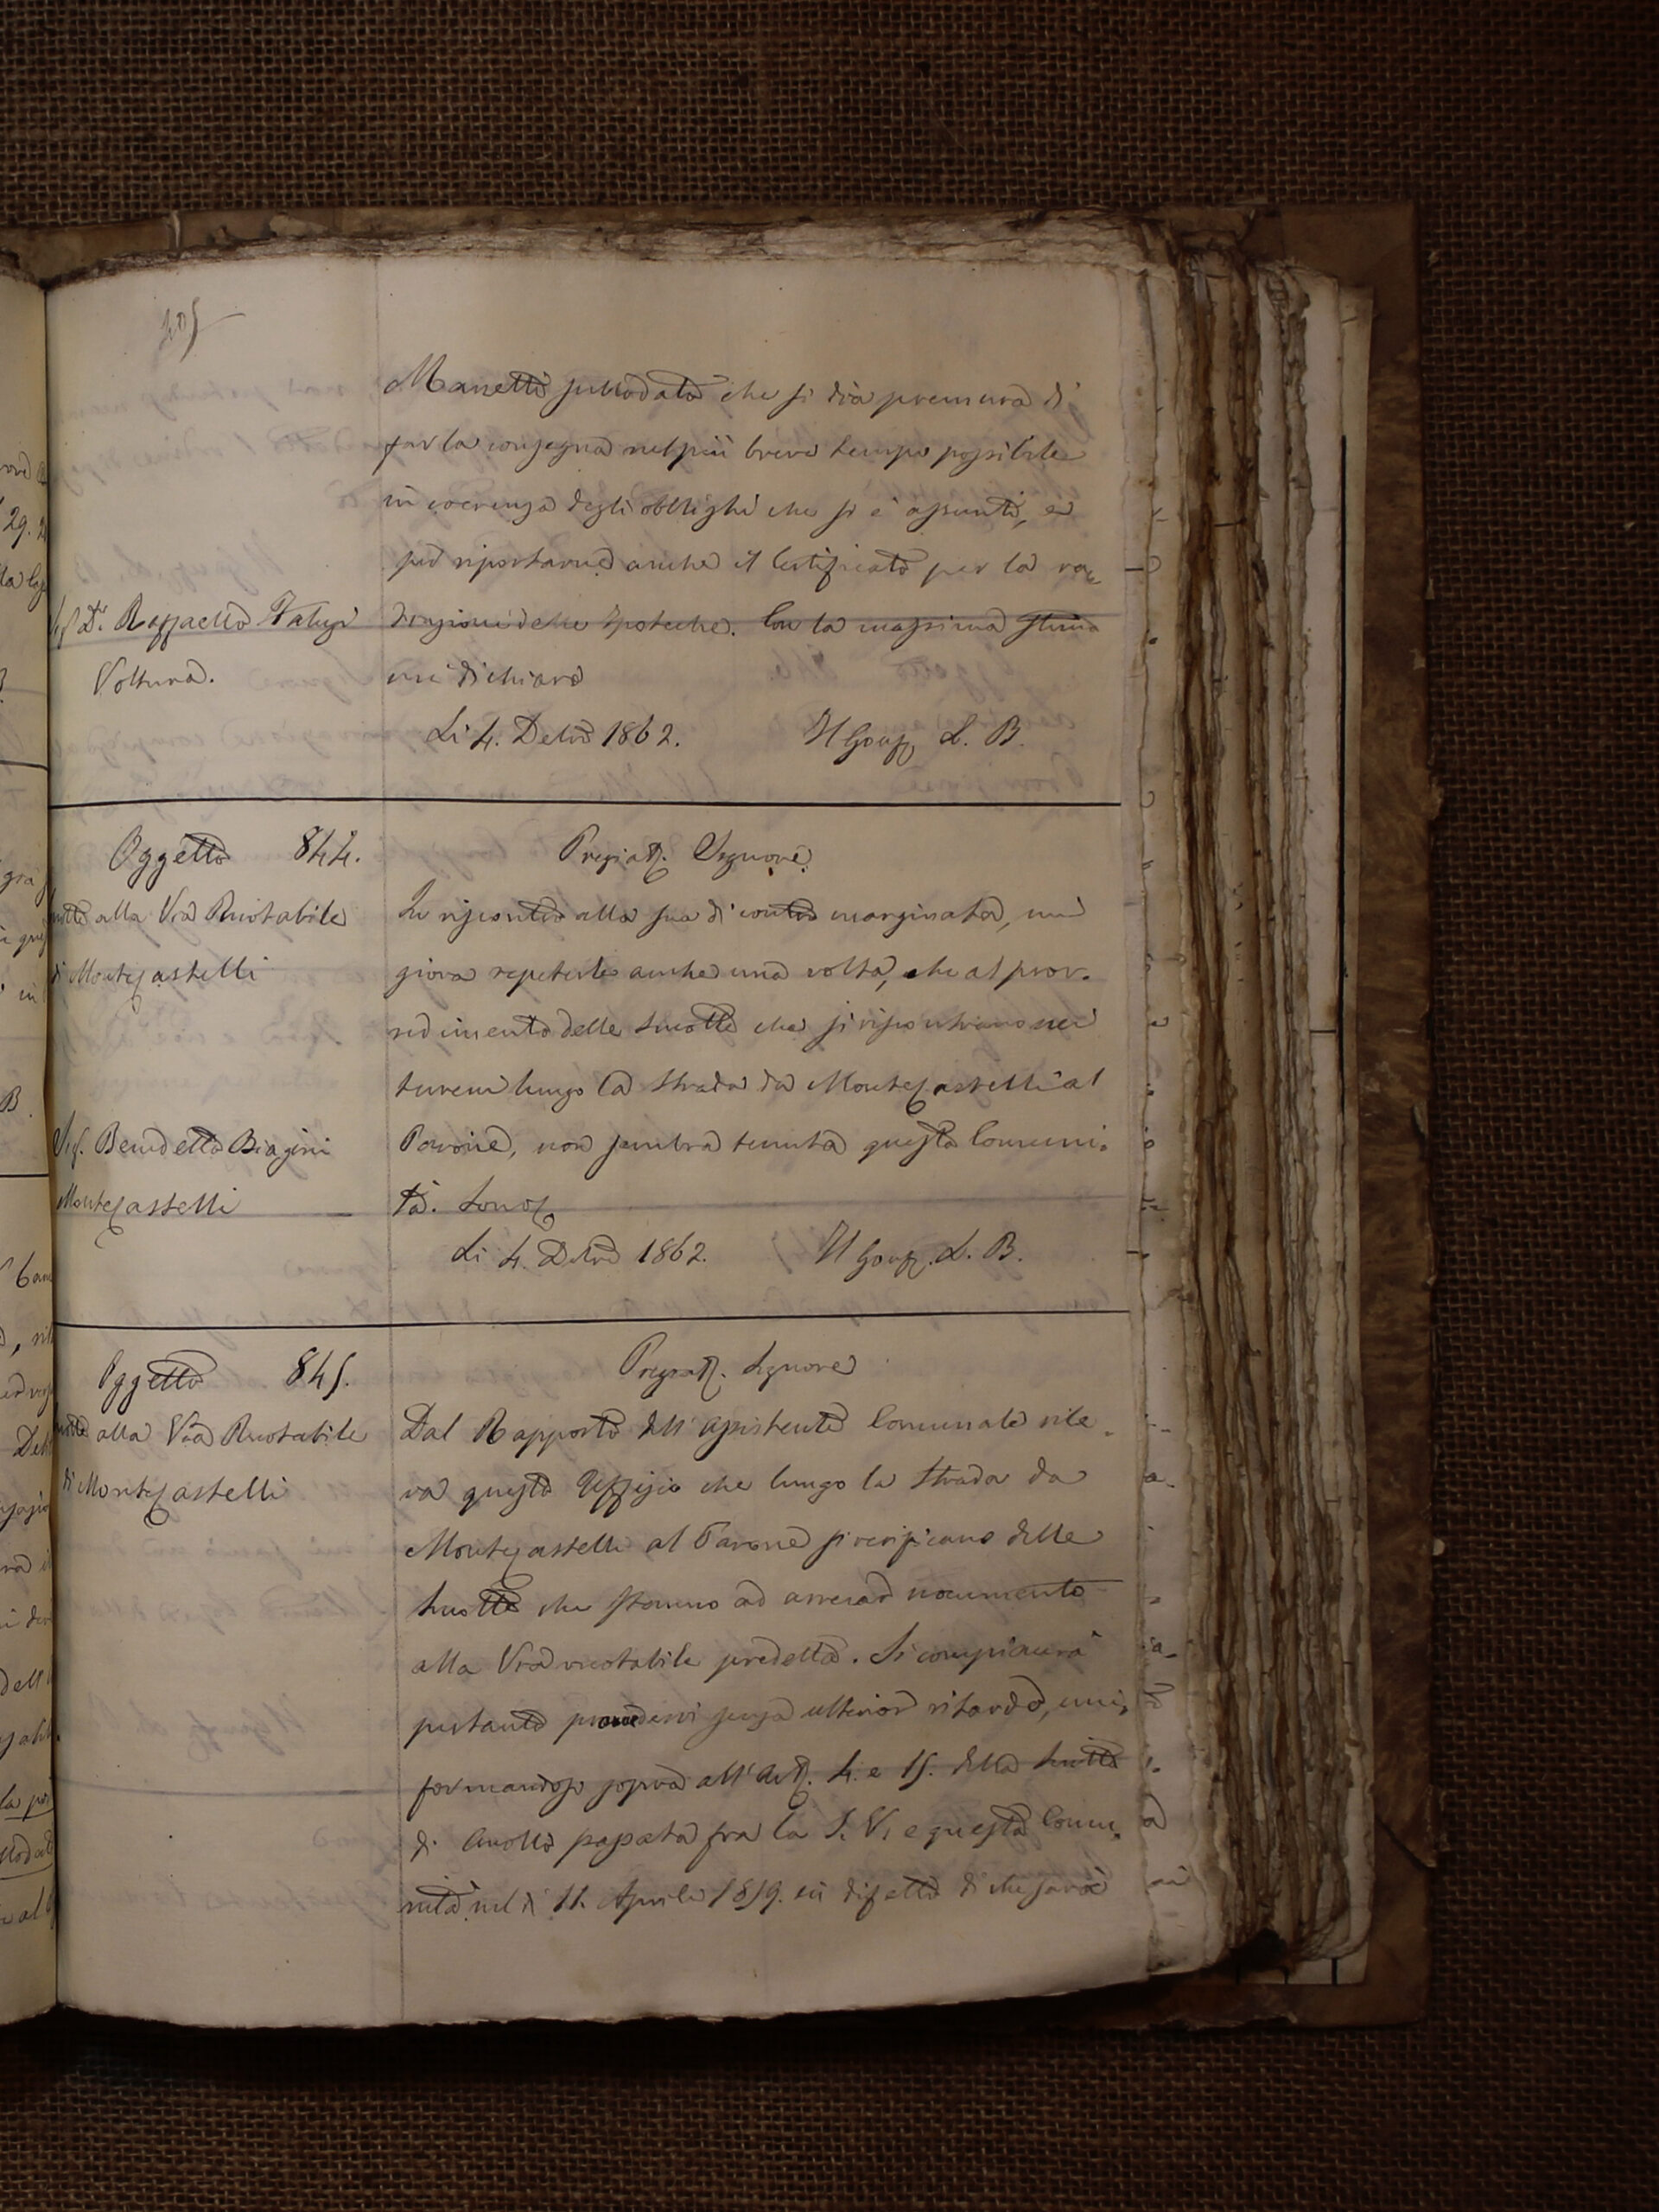 Manetti sullodato che si dia premura di
far la consegna nel più breve tempo possibile
in coerenza degli obblighi che si è assunti, e
per riportarne anche il Certificato per la ra-
Raffaello
Voltura.
diazione delle Ipoteche. Con la massima stima
mi dichiaro
Li 4. Debre 1862.
Il Gonfre L. B.
Oggetto 844.
alla Via Ruotabile
di MonteCastelli
Sig. Benedetto Biagini
MonteCastelli
Pregiatmo Signore
In riscontro alla sua di contro marginata, mi
giova repeterle anche una volta, che al prov-
vedimento delle smotte che si riscontrano nei
terreni lungo la strada da MonteCastelli al
Pavone, non sembra tenuta questa Comuni-
tà. Sono
Li 4. Debre 1862.
Il Gonfre L. B.
Oggetto 845.
alla Via Ruotabile
di MonteCastelli
Pregiatmo Signore
Dal Rapporto dell'assistente Comunale rile-
va questo Uffizio che lungo la strada da
MonteCastelli al Pavone si verificano delle
smotte che stanno ad arrecar nocumento
alla Via ruotabile predetta. Si compiacerà
pertanto provvedervi senza ulterior ritardo, uni-
formandosi sopra all'Art. 4. e 15. della scritta
di Accollo passata fra la S. V. e questa Comu-
nità nel dì 11. Aprile 1859. in difetto di che sarà